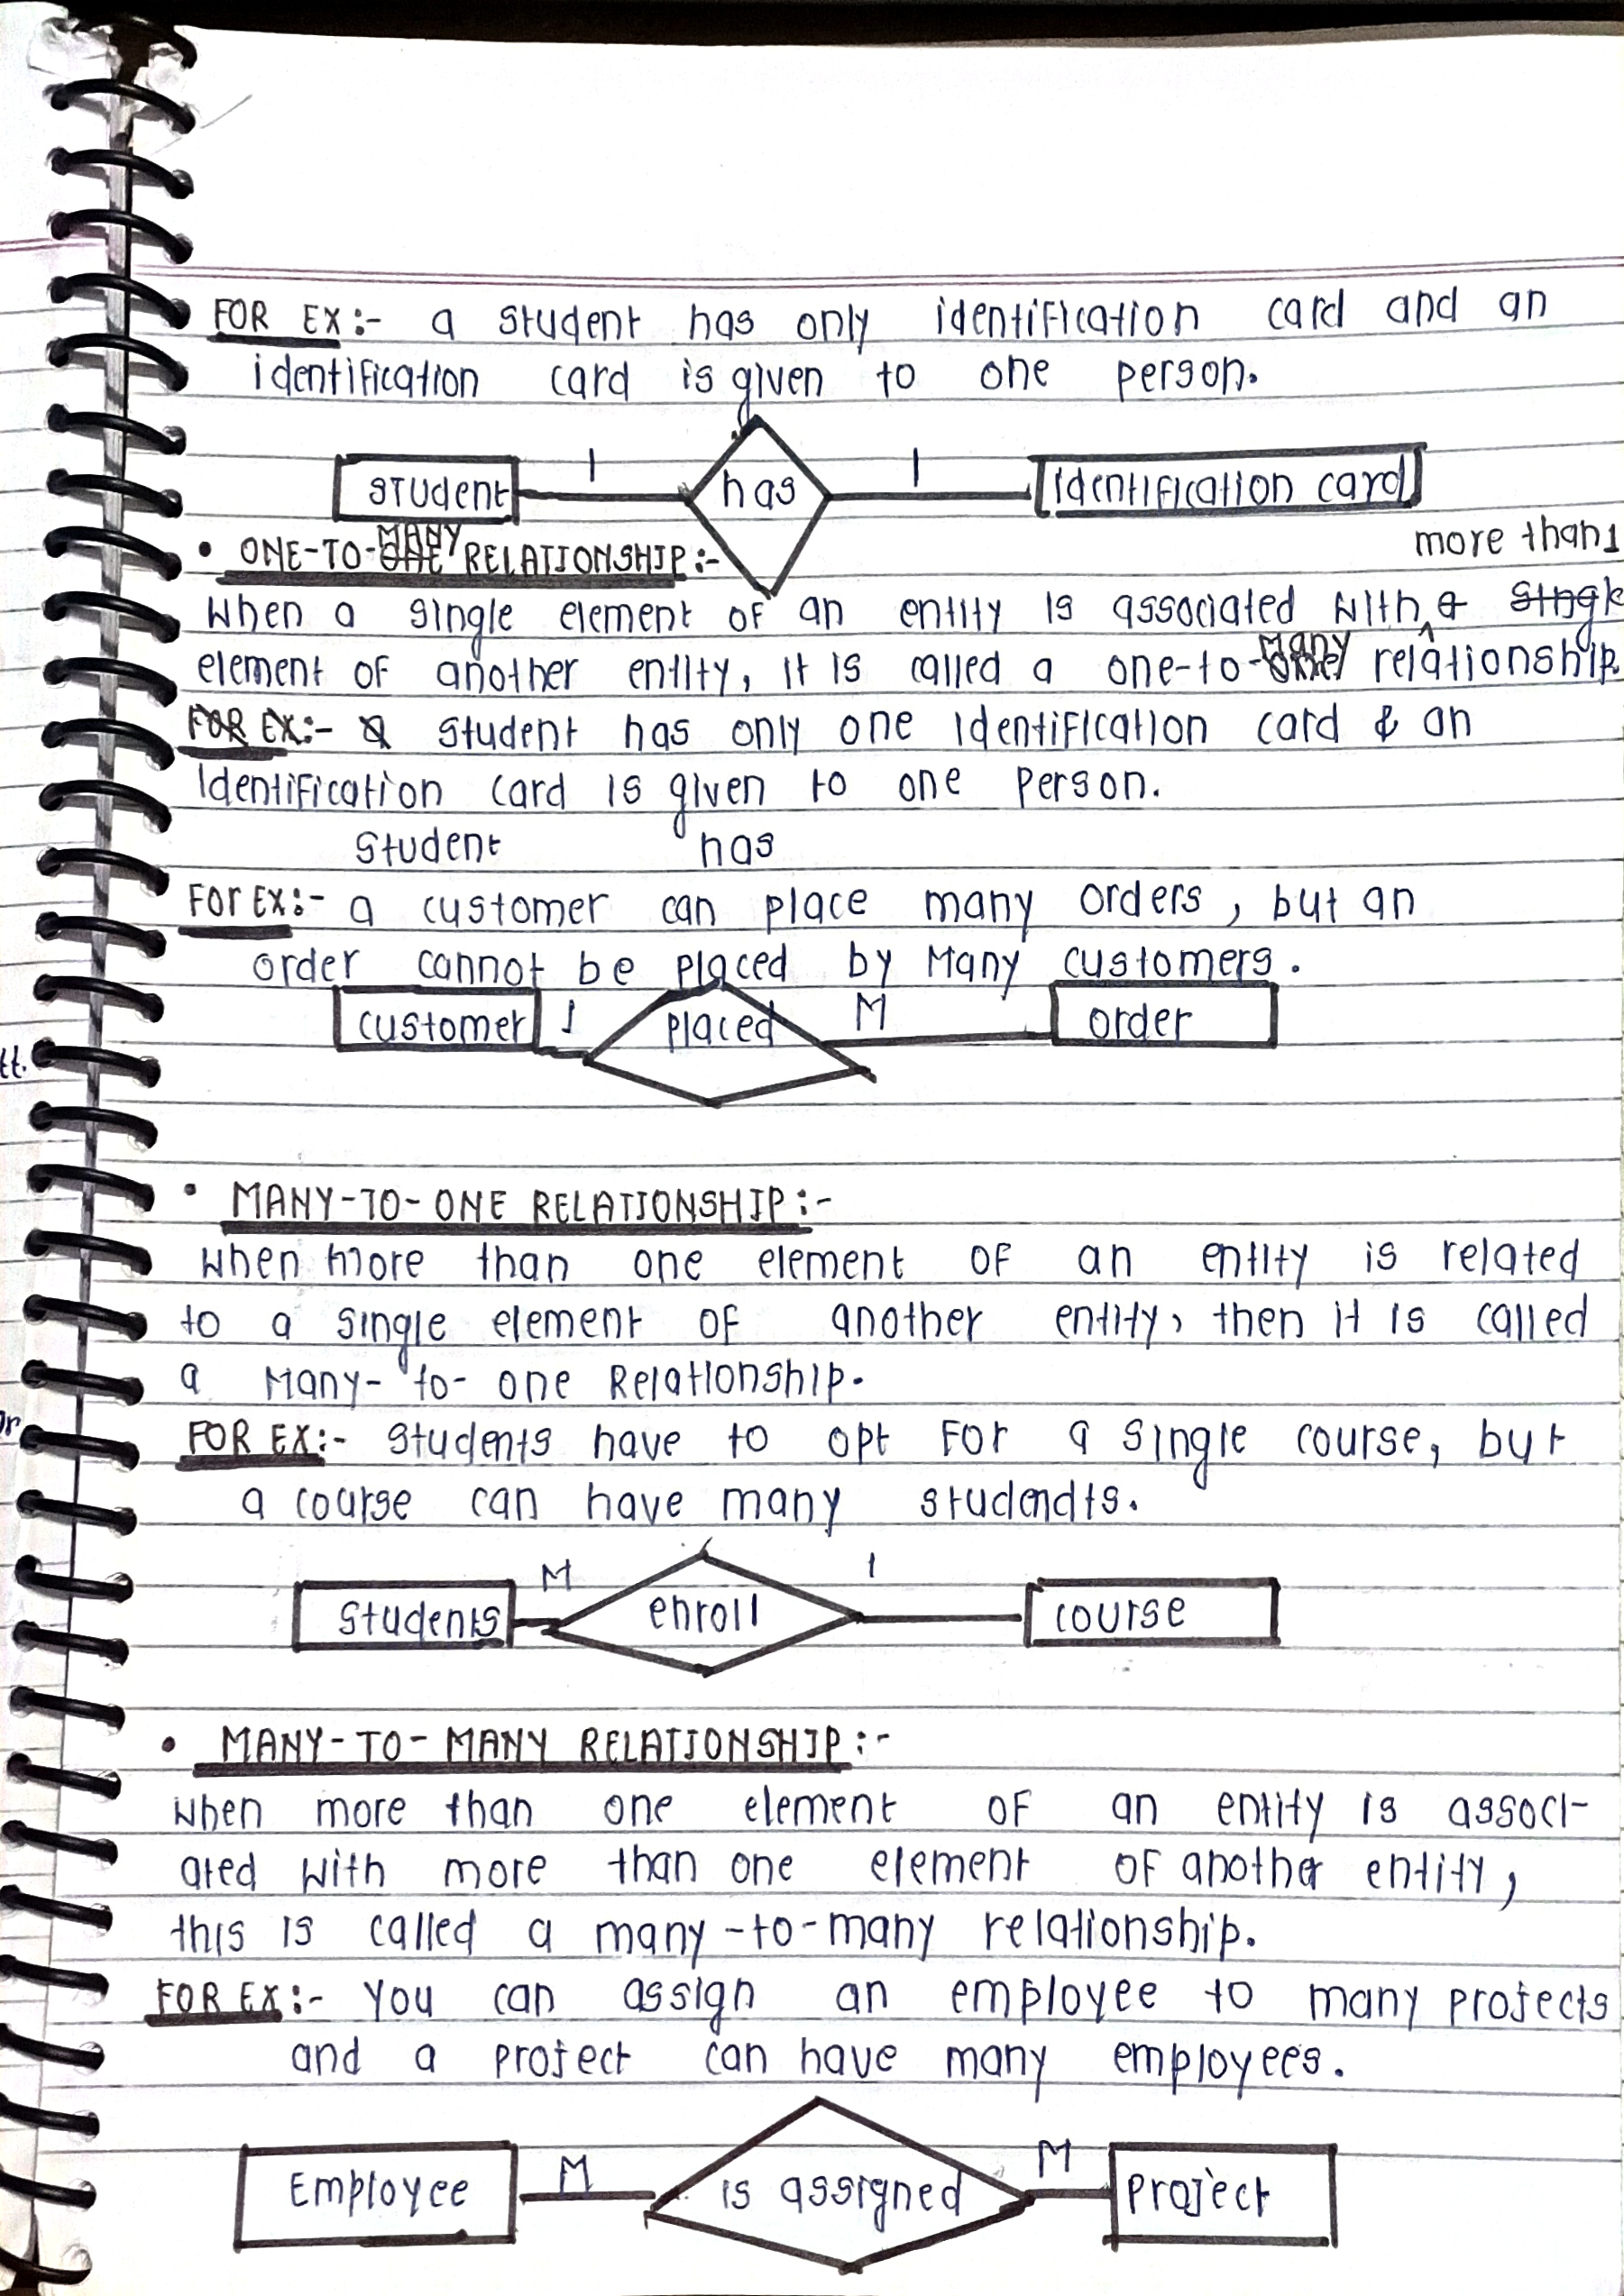 FOR EX:- a student has only identification card and an
identification card is given to one person.
student 1 has 1 identification card
• ONE-TO-MANY RELATIONSHIP:-
more than 1
When a single element of an entity is associated with a single
element of another entity, it is called a one-to-many relationship.
FOR EX:- a student has only one identification card & an
identification card is given to one person.
student has
For EX:- a customer can place many orders, but an
order cannot be placed by Many customers.
customer 1 placed M order
tt.
• MANY-TO-ONE RELATIONSHIP:-
when more than one element of an entity is related
to a single element of another entity, then it is called
a Many-to-one Relationship.
or
FOR EX:- students have to opt for a single course, but
a course can have many studendts.
students M enroll 1 course
• MANY-TO-MANY RELATIONSHIP:-
when more than one element of an entity is associ-
ated with more than one element of another entity,
this is called a many-to-many relationship.
FOR EX:- You can assign an employee to many projects
and a project can have many employees.
Employee M is assigned M project